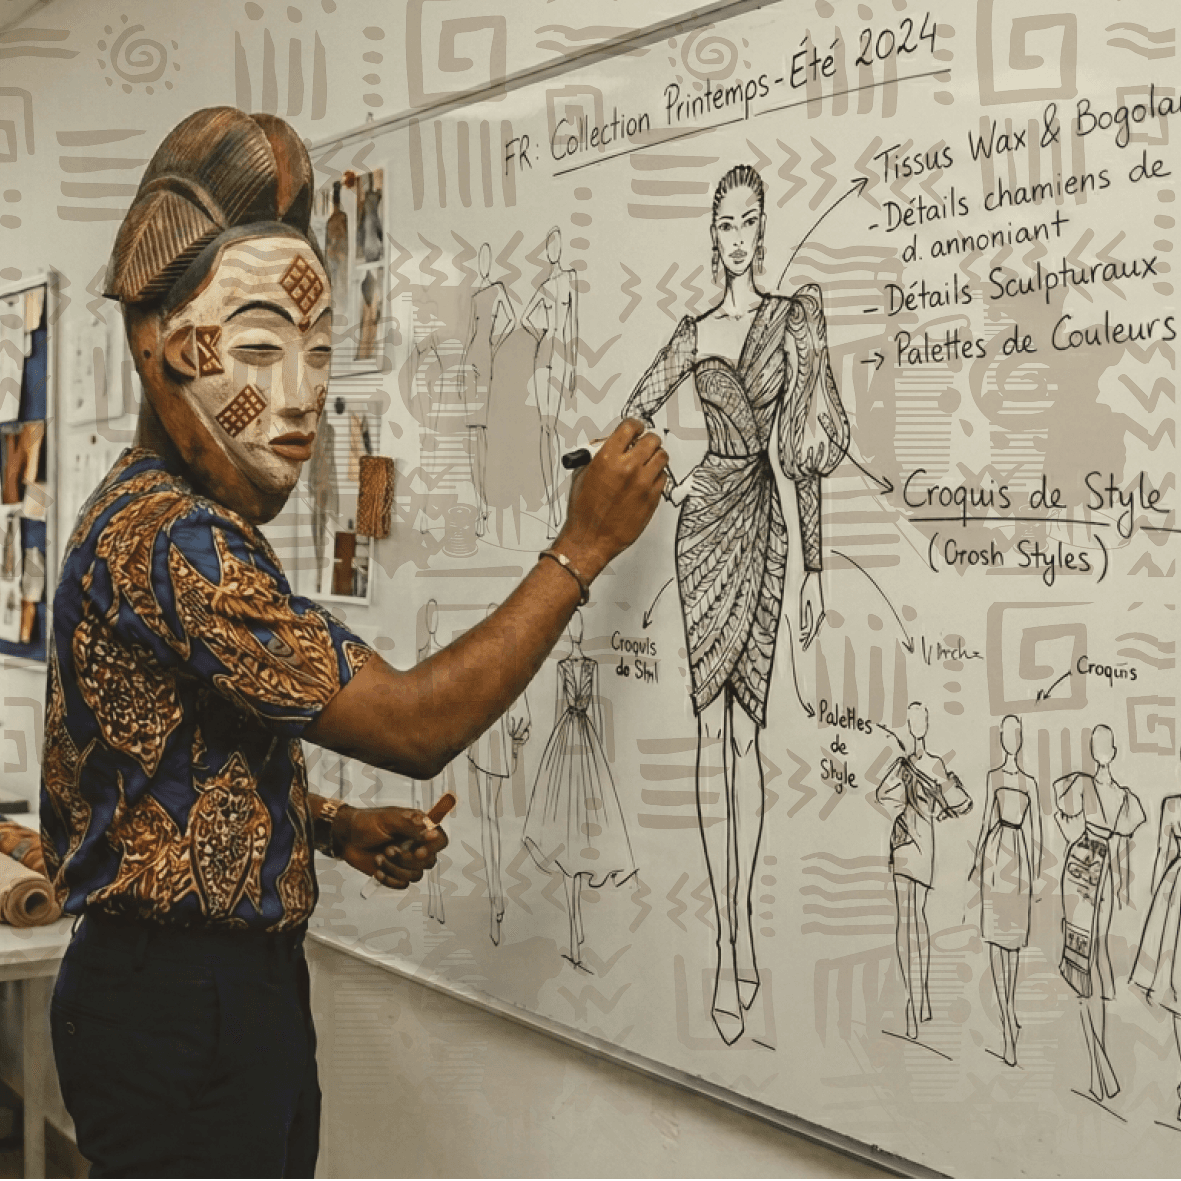 FR: Collection Printemps-Été 2024
Tissus Wax & Bogola
-Détails chamiens de
d. annoniant
-Détails Sculpturaux
→ Palettes de Couleurs
Croquis de Style
(Orosh Styles)
Croquis
do
Croquis
Palettes
de
Style